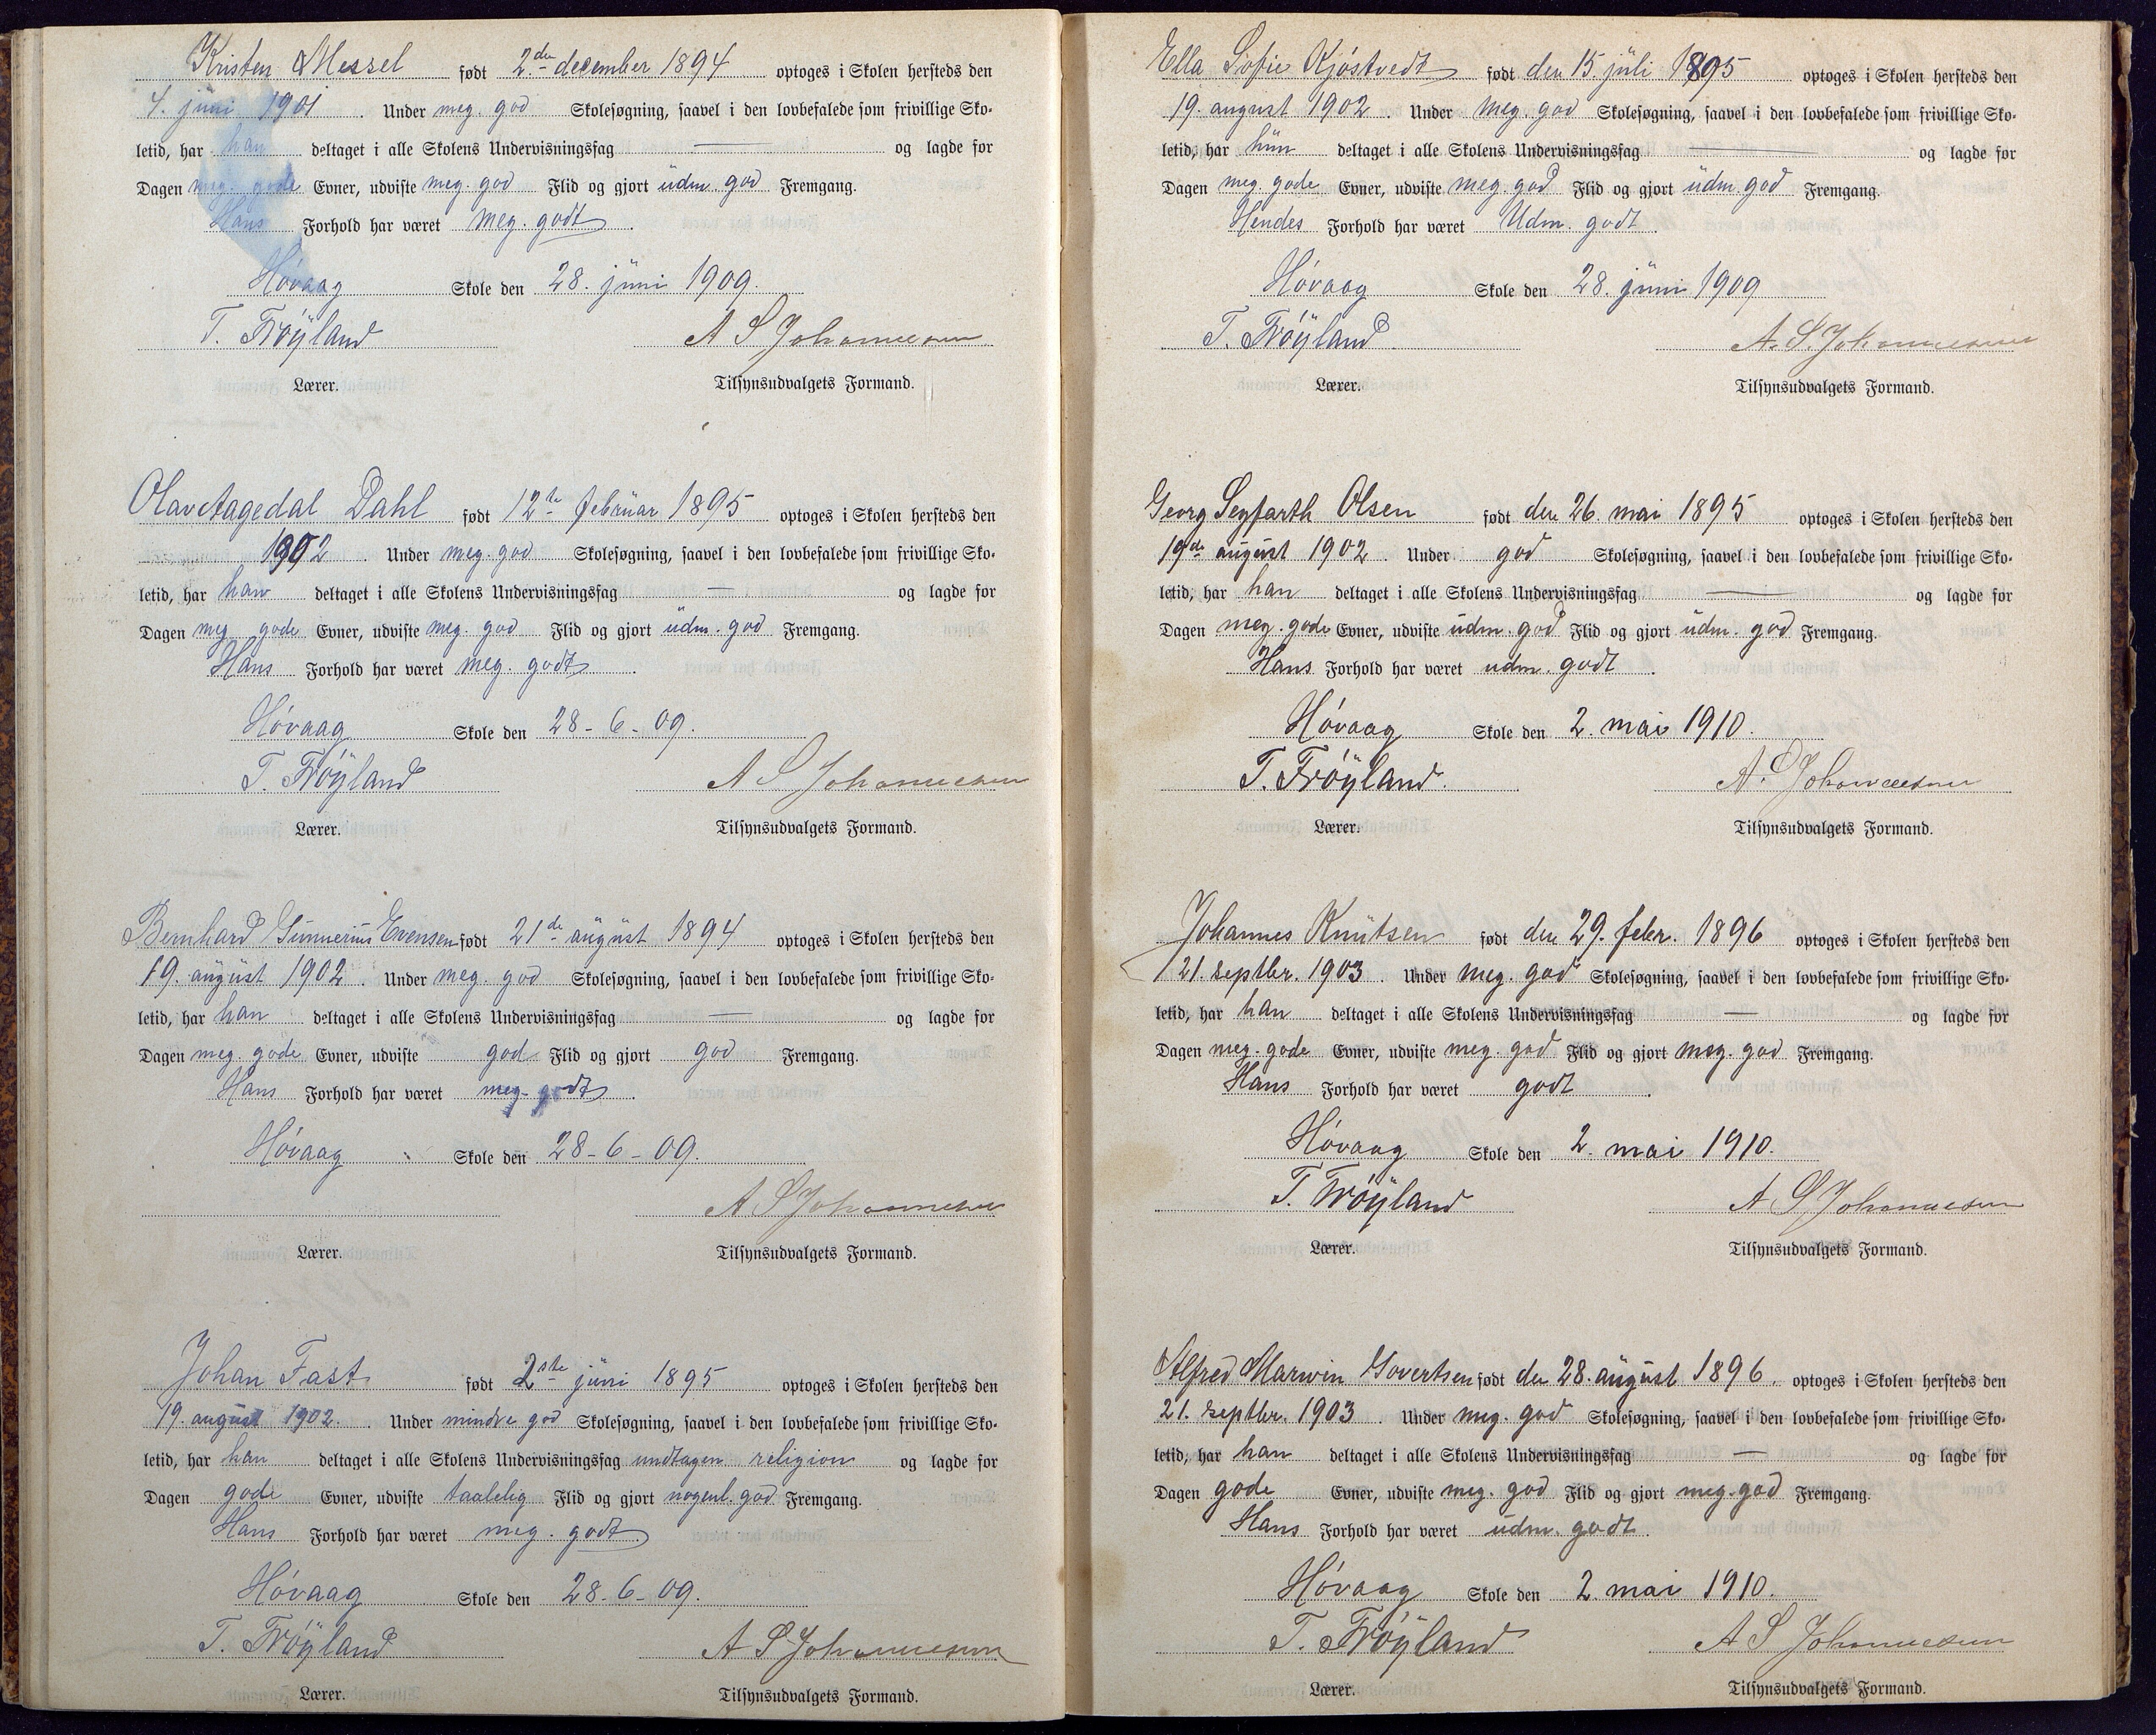 Kristen Messel født 2.de december 1894 optoges i Skolen hersteds den
4. juni 1901. Under meg. god Skolesøgning, saavel i den lovbefalede som frivillige Sko-
letid, har han deltaget i alle Skolens Undervisningsfag — og lagde for
Dagen meg. gode Evner, udviste meg. god Flid og gjort udm. god Fremgang.
Hans Forhold har været meg. godt.
Høvaag Skole den 28. juni 1909.
T. Frøyland A S Johannessen
Lærer. Tilsynsudvalgets Formand.
Olav Aagedal Dahl født 12te februar 1895 optoges i Skolen hersteds den
1902. Under meg. god Skolesøgning, saavel i den lovbefalede som frivillige Sko-
letid, har han deltaget i alle Skolens Undervisningsfag — og lagde for
Dagen meg gode Evner, udviste meg. god Flid og gjort udm. god Fremgang.
Hans Forhold har været meg. godt.
Høvaag Skole den 28-6-09.
T. Frøyland A S Johannessen
Lærer. Tilsynsudvalgets Formand.
Bernhard Gunnerius Evensen født 21de august 1894 optoges i Skolen hersteds den
19. august 1902. Under meg. god Skolesøgning, saavel i den lovbefalede som frivillige Sko-
letid, har han deltaget i alle Skolens Undervisningsfag — og lagde for
Dagen meg. gode Evner, udviste god Flid og gjort god Fremgang.
Hans Forhold har været meg. godt.
Høvaag Skole den 28-6-09.
A S Johannessen
Lærer. Tilsynsudvalgets Formand.
Johan Fast født 2ste juni 1895 optoges i Skolen hersteds den
19. august 1902. Under mindre god Skolesøgning, saavel i den lovbefalede som frivillige Sko-
letid, har han deltaget i alle Skolens Undervisningsfag undtagen religion og lagde for
Dagen gode Evner, udviste taalelig Flid og gjort nogenl. god Fremgang.
Hans Forhold har været meg. godt.
Høvaag Skole den 28-6-09.
T. Frøyland A S Johannessen
Lærer. Tilsynsudvalgets Formand.
Ella Sofie Kjøstvedt født den 15. juli 1895 optoges i Skolen hersteds den
19. august 1902. Under meg. god Skolesøgning, saavel i den lovbefalede som frivillige Sko-
letid, har hun deltaget i alle Skolens Undervisningsfag — og lagde for
Dagen meg. gode Evner, udviste meg. god Flid og gjort udm. god Fremgang.
Hendes Forhold har været Udm. godt.
Høvaag Skole den 28. juni 1909
T. Frøyland A. S. Johannessen
Lærer. Tilsynsudvalgets Formand.
Georg Seyfarth Olsen født den 26. mai 1895 optoges i Skolen hersteds den
19de august 1902. Under god Skolesøgning, saavel i den lovbefalede som frivillige Sko-
letid, har han deltaget i alle Skolens Undervisningsfag — og lagde for
Dagen meg. gode Evner, udviste udm. god Flid og gjort udm. god Fremgang.
Hans Forhold har været udm. godt.
Høvaag Skole den 2. mai 1910.
T. Frøyland. A. S Johannessen
Lærer. Tilsynsudvalgets Formand.
Johannes Knutsen født den 29. febr. 1896 optoges i Skolen hersteds den
21. septbr. 1903. Under meg. god Skolesøgning, saavel i den lovbefalede som frivillige Sko-
letid, har han deltaget i alle Skolens Undervisningsfag — og lagde for
Dagen meg. gode Evner, udviste meg. god Flid og gjort meg. god Fremgang.
Hans Forhold har været godt.
Høvaag Skole den 2. mai 1910.
T. Frøyland A S Johannessen
Lærer. Tilsynsudvalgets Formand.
Alfred Marwin Govertsen født den 28. august 1896. optoges i Skolen hersteds den
21. septbr. 1903. Under meg. god Skolesøgning, saavel i den lovbefalede som frivillige Sko-
letid, har han deltaget i alle Skolens Undervisningsfag — og lagde for
Dagen gode Evner, udviste meg. god Flid og gjort meg. god Fremgang.
Hans Forhold har været udm. godt.
Høvaag Skole den 2. mai 1910.
T. Frøyland A S Johannessen
Lærer. Tilsynsudvalgets Formand.